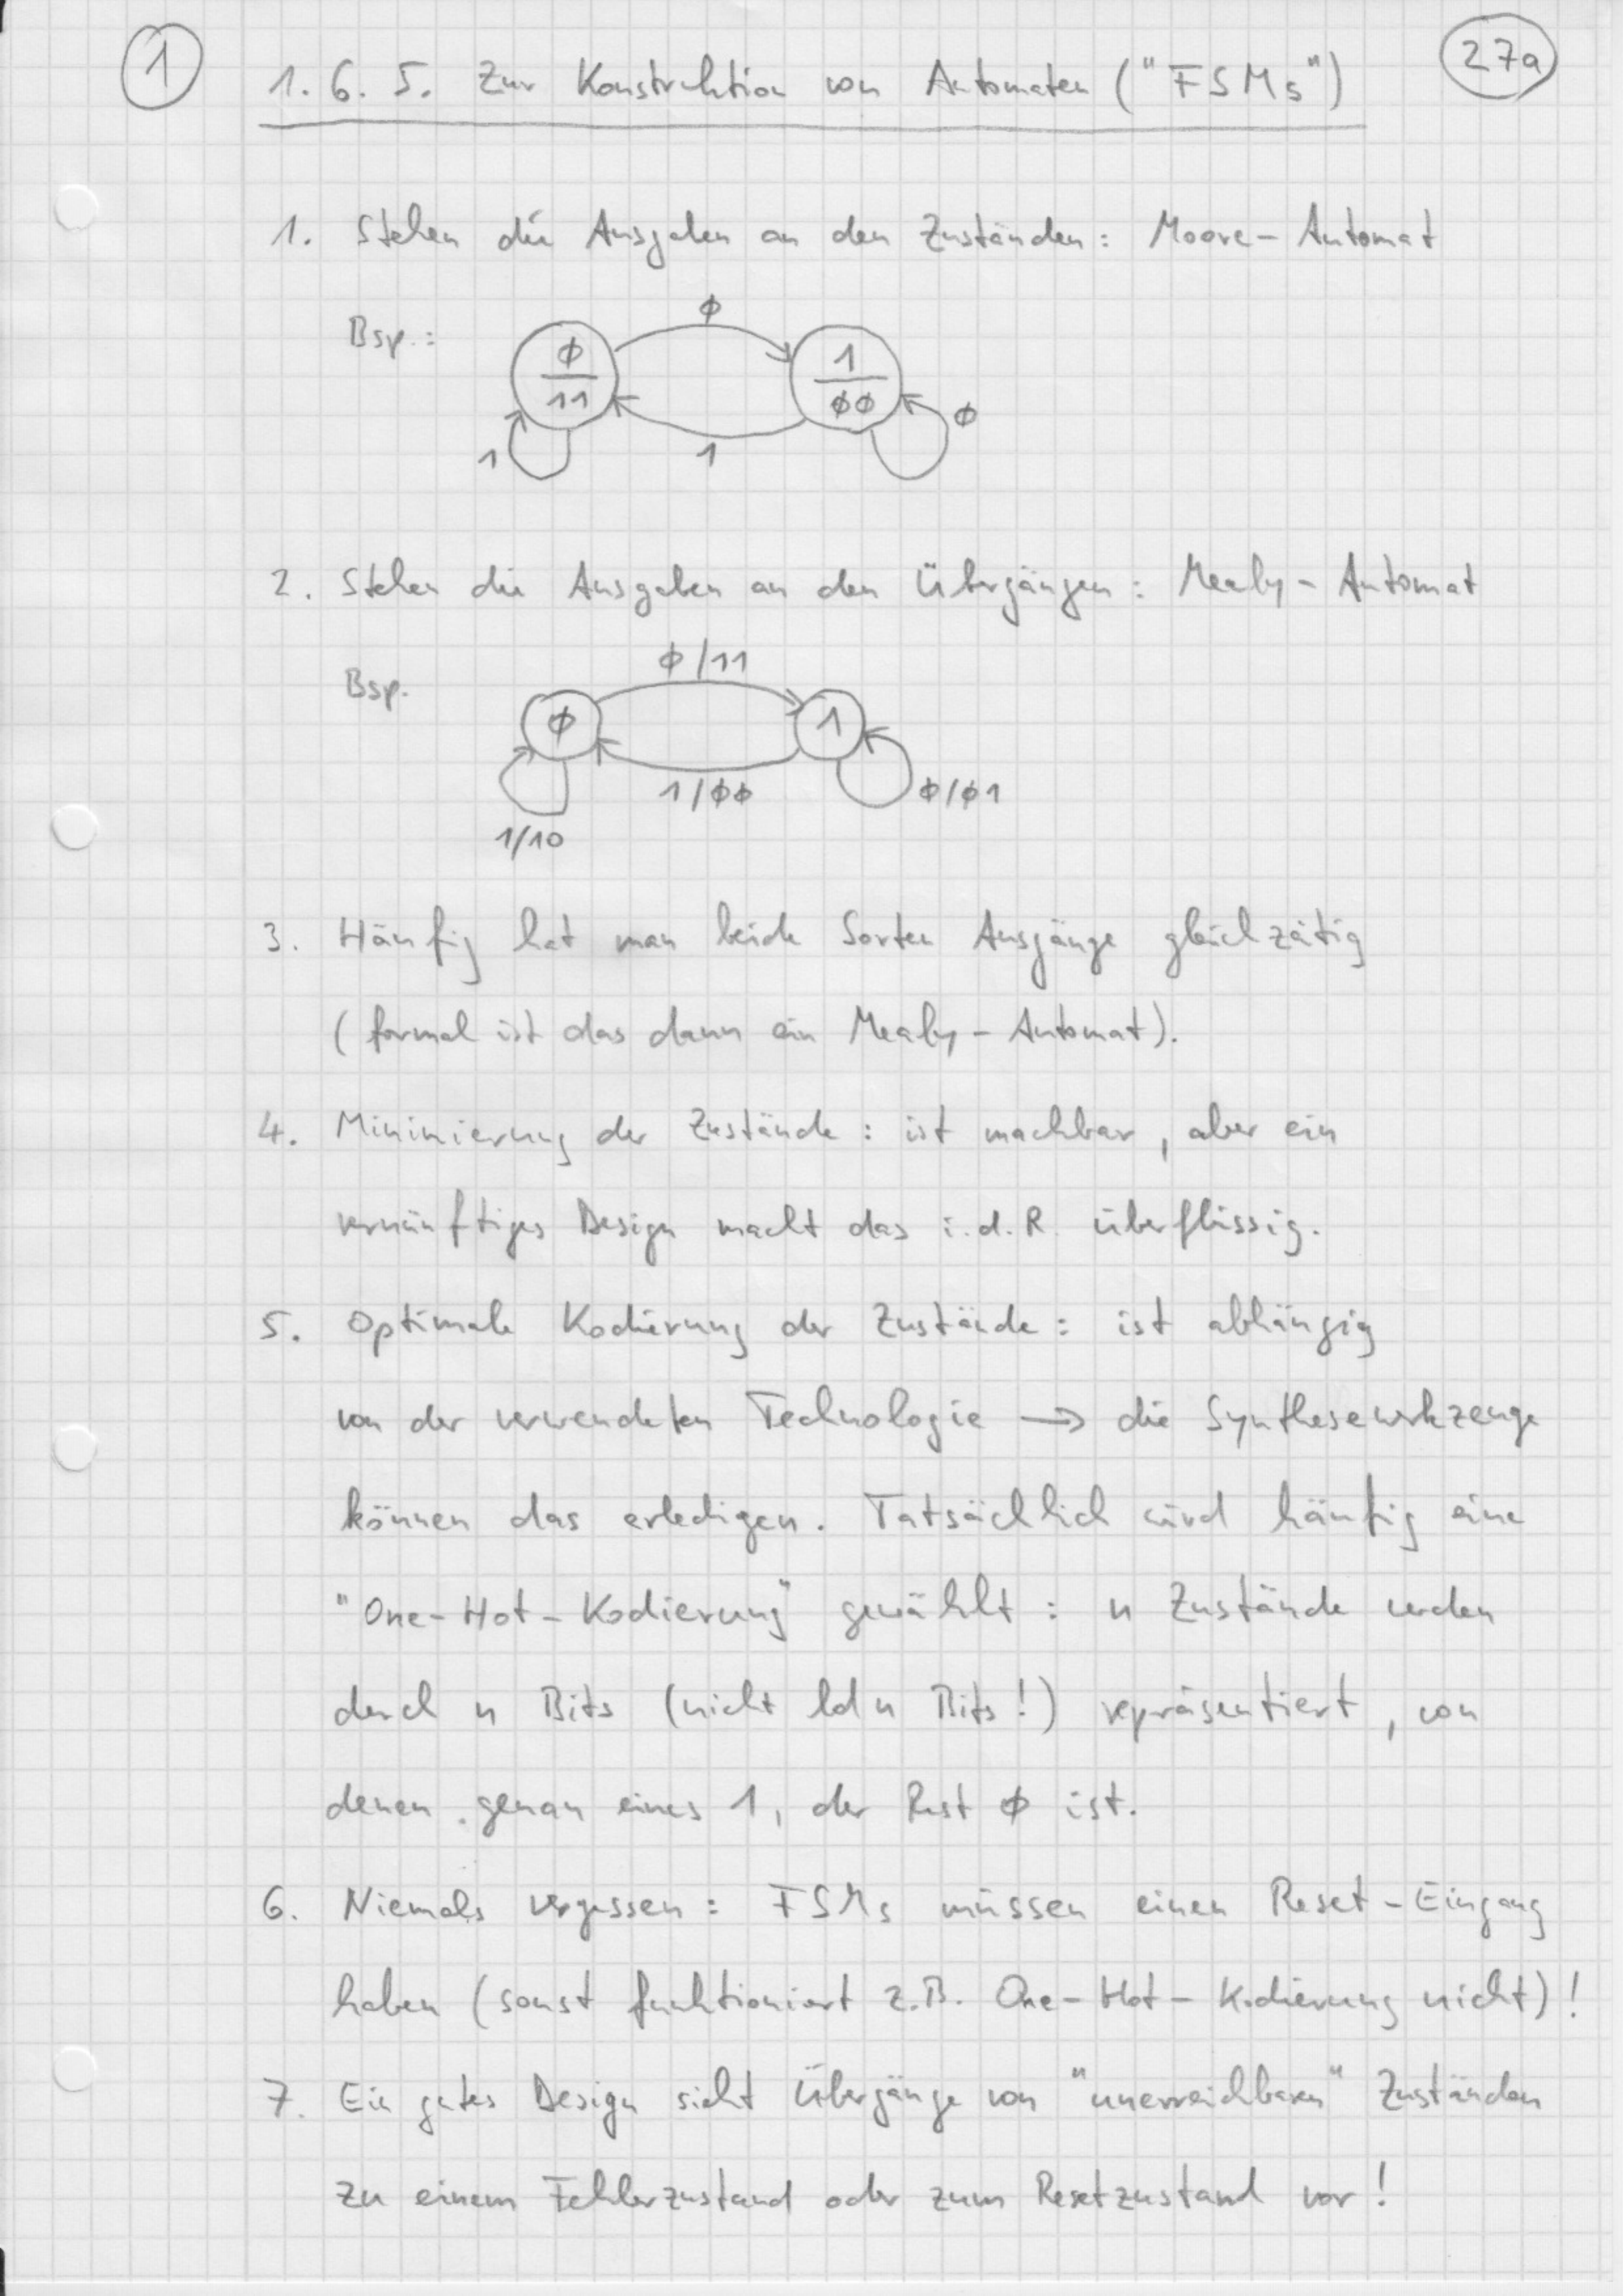 1
27a
1.6.5. Zur Konstruktion von Automaten ("FSMs")
1. Stehen die Ausgaben an den Zuständen: Moore-Automat
Bsp.:
ϕ
ϕ
11
1
ϕϕ
1
1
ϕ
2. Stehen die Ausgaben an den Übergängen: Mealy-Automat
Bsp.
ϕ/11
ϕ
1
1/ϕϕ
ϕ/ϕ1
1/10
3. Häufig hat man beide Sorten Ausgänge gleichzeitig
(formal ist das dann ein Mealy-Automat).
4. Minimierung der Zustände: ist machbar, aber ein
vernünftiges Design macht das i.d.R. überflüssig.
5. Optimale Kodierung der Zustände: ist abhängig
von der verwendeten Technologie → die Synthesewerkzeuge
können das erledigen. Tatsächlich wird häufig eine
"One-Hot-Kodierung" gewählt: n Zustände werden
durch n Bits (nicht ld n Bits!) repräsentiert, von
denen genau eines 1, der Rest ϕ ist.
6. Niemals vergessen: FSMs müssen einen Reset-Eingang
haben (sonst funktioniert z.B. One-Hot-Kodierung nicht)!
7. Ein gutes Design sieht Übergänge von "unerreichbaren" Zuständen
zu einem Fehlerzustand oder zum Resetzustand vor!